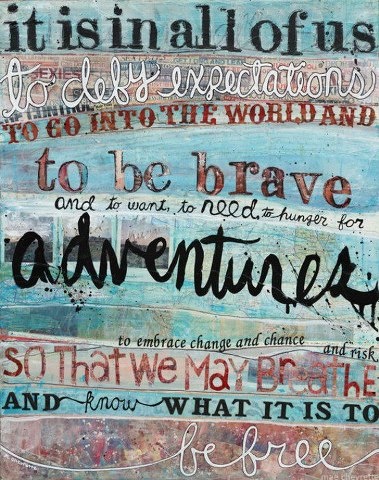 it is in all of us
to defy expectations
TO GO INTO THE WORLD AND
to be brave
and to want, to need to hunger for
adventures
to embrace change and chance and risk
SO That We MAY BREAThE
AND know WHAT IT IS TO
be free
mae chevrette